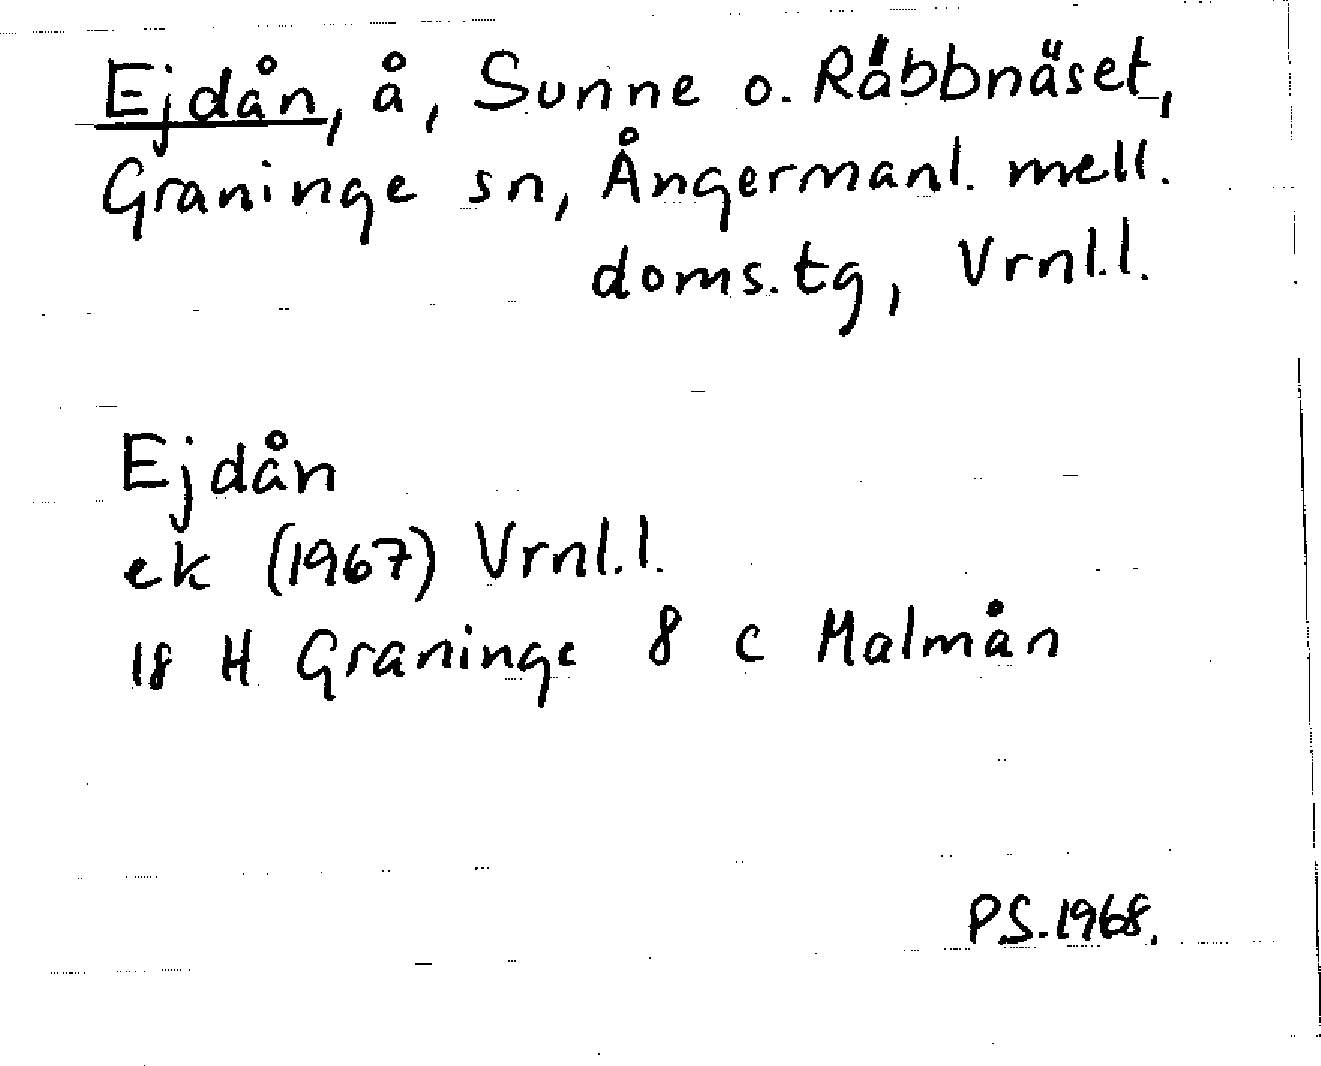 Ejdån, å, Sunne o. Råbbnäset,
Graninge sn, Ångermanl. mell.
doms.tg, Vrnl.l.
Ejdån
ek (1967) Vrnl.l.
18 H Graninge 8 c Malmån
P.S. 1968.